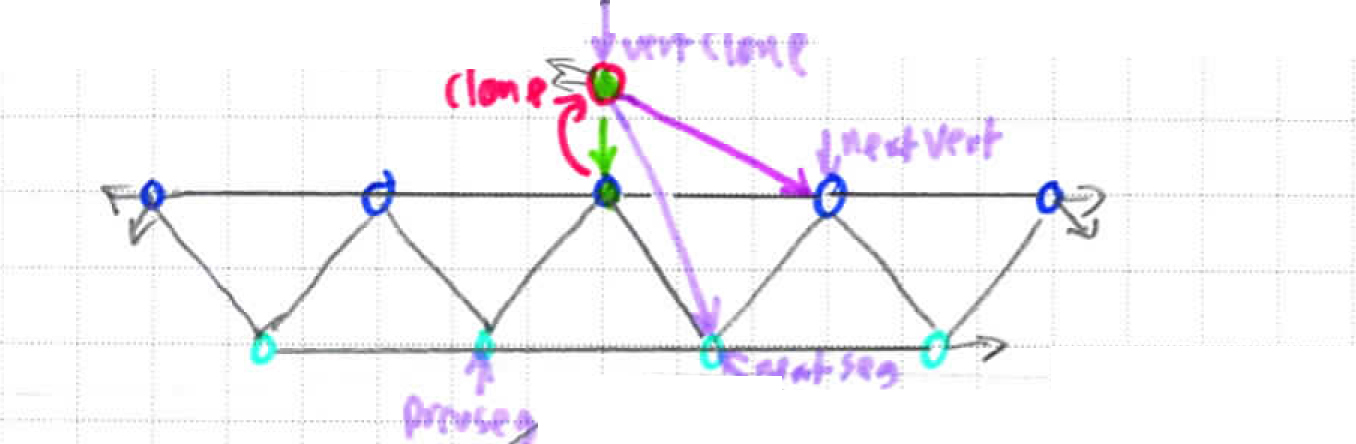 vertclone
clone
nextvert
nextseg
prevseg